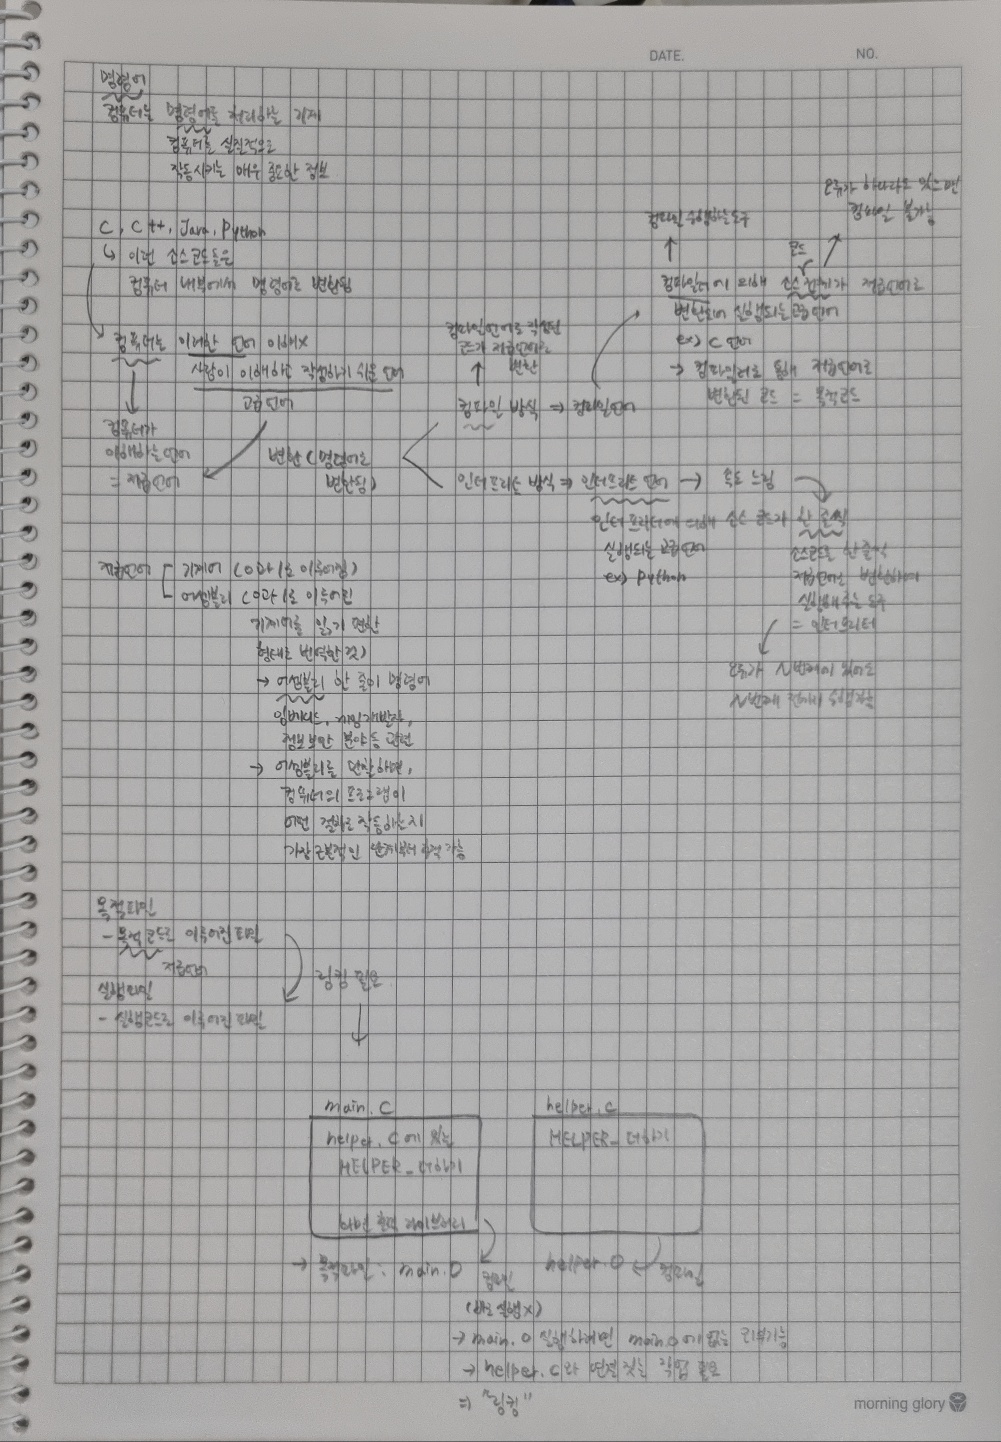 DATE.
NO.
명령어
컴퓨터는 명령어를 처리하는 기계
컴퓨터를 실질적으로
작동시키는 매우 중요한 정보
C, C++, Java, Python
↳ 이런 소스코드들은
컴퓨터 내부에서 명령어로 변환됨
컴퓨터는 이러한 언어 이해X
사람이 이해하고 작성하기 쉬운 언어
고급언어
컴퓨터가
이해하는 언어
= 저급언어
변환 (명령어로
변환됨)
컴파일언어로 작성된
코드가 저급언어로
변환
컴파일 방식 ⇒ 컴파일언어
컴파일 수행하는 도구
오류가 하나라도 있으면
컴파일 불가능
코드
컴파일러에 의해 소스 전체가 저급언어로
변환되어 실행되는 고급언어
ex) C 언어
→ 컴파일러로 통해 저급언어로
변환된 코드 = 목적코드
인터프리트 방식 ⇒ 인터프리트 언어 → 속도 느림
인터프리터에 의해 소스 코드가 한 줄씩
실행되는 고급언어
ex) Python
소스코드를 한 줄씩
저급언어로 변환하여
실행해 주는 도구
= 인터프리터
오류가 N번째에 있어도
N번째 전까지 수행가능
저급언어
기계어 (0과 1로 이루어짐)
어셈블리 (0과 1로 이루어진
기계어를 읽기 편한
형태로 번역한 것)
→ 어셈블리 한 줄이 명령어
임베디드, 게임개발자,
정보보안 분야 등 관련
→ 어셈블리를 관찰하면,
컴퓨터의 프로그램이
어떤 절차로 작동하는지
가장 근본적인 단계부터 추적 가능
목적파일
- 목적코드로 이루어진 파일
저급언어
실행파일
- 실행코드로 이루어진 파일
링킹 필요
main.C
helper.C에 있는
HELPER_더하기
화면 출력 라이브러리
helper.C
HELPER_더하기
→ 목적파일 : main.O
컴파일
(바로 실행X)
helper.O ← 컴파일
→ main.O 실행하려면 main.O에 없는 외부기능
→ helper.C와 연결 짓는 작업 필요
⇒ "링킹"
morning glory